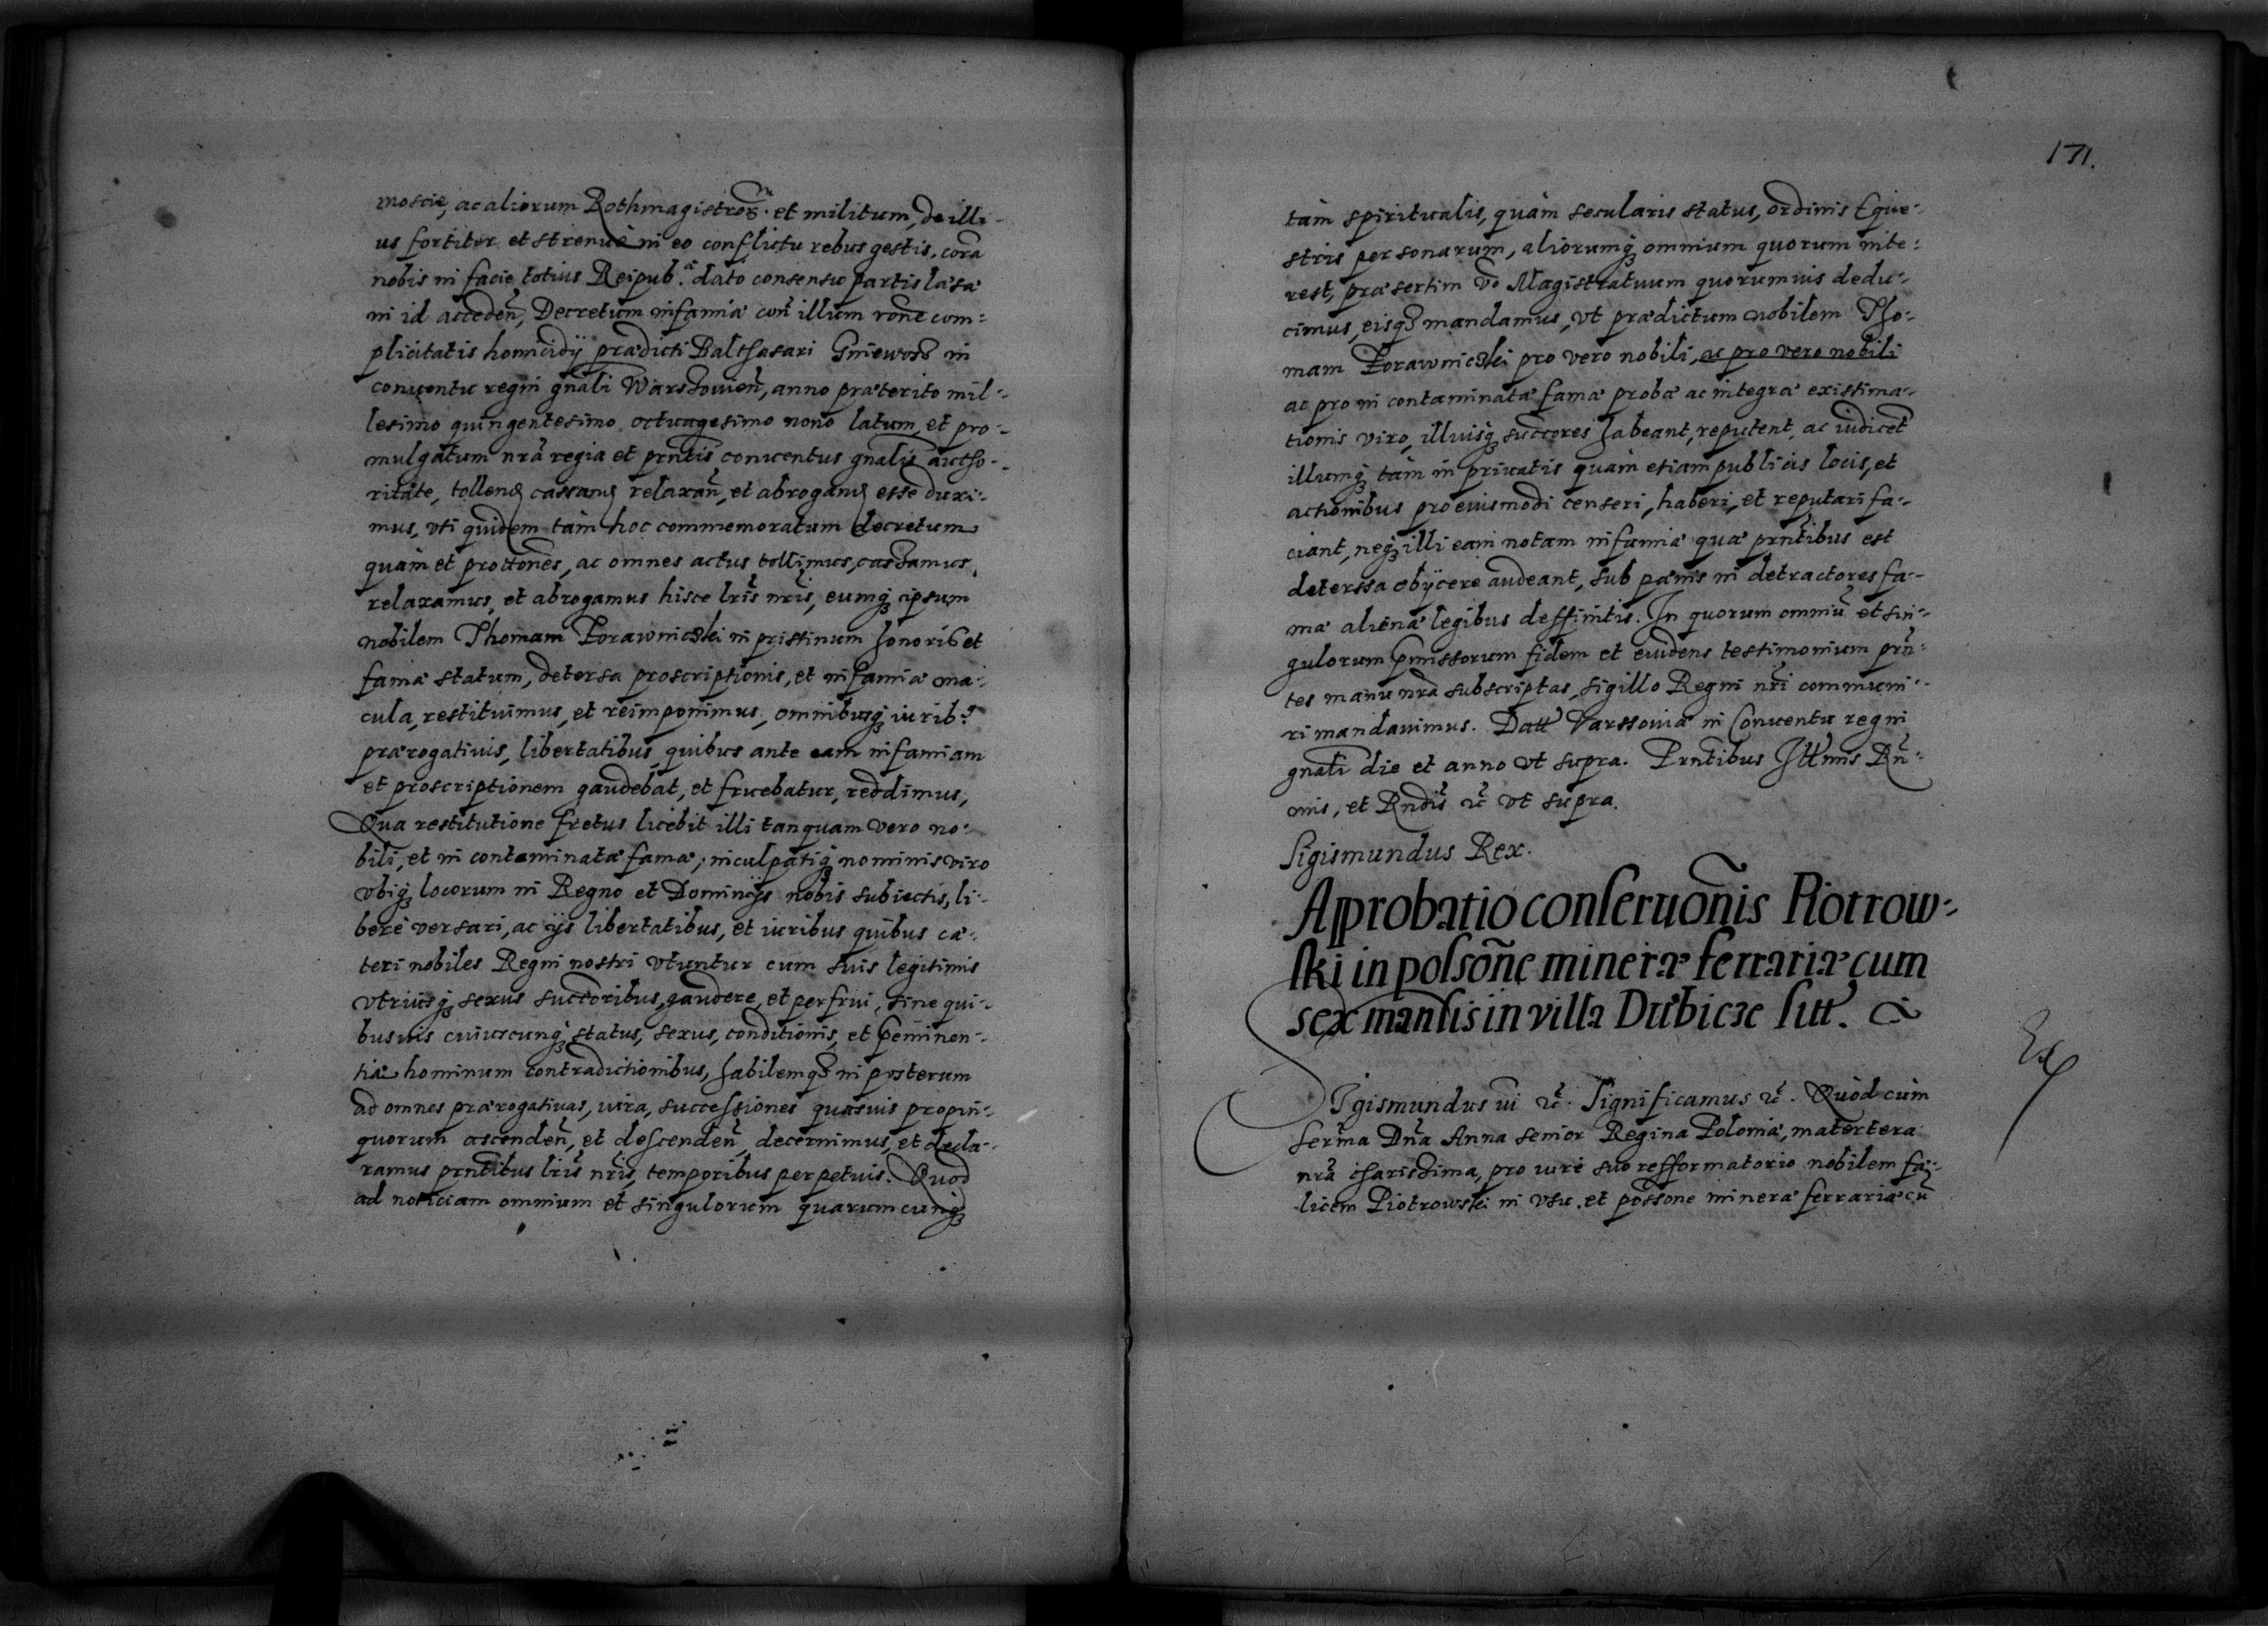 moscie, ac aliorum Rothmagistroꝝ. et militum, de illi-
us fortiter et strenuè in eo conflictu rebus gestis, corã
nobis in facie totius Reipub.ᵃᵉ dato consensu partis læsæ
in id acceden̄, Decretum infamiæ con̄ illum rōne com-
plicitatis homicidÿ prædicti Balthasari Gniewosz in
conuentu regni gn̄ali Warszouien̄, anno præterito mil-
lesimo quingentesimo octuagesimo nono latum, et pro-
mulgatum nr̄a regia et prn̄tis conuentus gn̄alis autho-
ritate, tollenđ cassanđ relaxan̄, et abroganđ esse duxi-
mus, vti quidem tàm hoc commemoratum decretum
quàm et prottōnes, ac omnes actus tollimus, cassamus,
relaxamus, et abrogamus hisce lr̄is nr̄is, eumq; ipsum
nobilem Thomam Porawniczki in pristinum honoris et
famæ statum, detersa proscriptionis, et infamiæ ma-
cula, restituimus, et reimponimus, omnibusq; iurib9
prærogatiuis, libertatibus, quibus ante eam infamiam
et proscriptionem gaudebat, et fruebatur, reddimus,
Qua restitutione fretus licebit illi tanquam vero no-
bili, et in contaminatæ famæ, inculpatiq; nominis viro
vbiq; locorum in Regno et Dominÿs nobis subiectis, li-
berè versari, ac ÿs libertatibus, et iuribus quibus cæ-
teri nobiles Regni nostri vtuntur cum suis legitimis
vtriusq; sexus succ̄oribus, gaudere, et perfrui, sine qui-
busuis cuiuscunq; status, sexus, conditionis, et p̄eminen-
tiæ hominum contradictionibus, habilemq; in posterum
ad omnes prærogatiuas, iura, successiones quasuis propin-
quorum ascenden̄, et descenden̄, decernimus, et decla-
ramus prn̄tibus lr̄is nr̄is, temporibus perpetuis. Quod
ad noticiam omnium et singulorum quarumcunq;
171.
tàm spiritualis, quàm secularis status, ordinis Eque-
stris personarum, aliorumq; omnium quorum inte-
rest, præsertim vō Magistratuum quorumuis dedu-
cimus, eisq; mandamus, vt prædictum nobilem Tho-
mam Porawniczki pro vero nobili, ac pro vero nobili
ac pro in contaminatæ famæ probæ ac integræ existima-
tionis viro, illiusq; succ̄ores habeant, reputent, ac iudicent
illumq; tàm in priuatis quàm etiam publicis locis, et
actionibus pro eiusmodi censeri, haberi, et reputari fa-
ciant, neq; illi eam notam infamiæ quæ prn̄tibus est
deterssa obÿcere audeant, sub pænis in detractores fa-
mæ alienæ legibus deffinitis. In quorum omniũ et sin-
gulorum p̄missorum fidem et euidens testimonium prn̄-
tes manu nr̄a subscriptas, sigillo Regni nr̄i communi-
ri mandauimus. Datt Varssouiæ in Conuentu regni
gn̄ali die et anno vt supra. Prn̄tibus Ill̄mis Rn̄-
mis, et Rn̄dis ꝛc̄ vt supra.
Sigismundus Rex.
Approbatio conseruōnis Piotrow-
ski in possōne mineræ ferrariæ cum
sex mansis in villa Dubicze sitt.
Ex
Sigismundus iii ꝛc̄. Significamus ꝛc̄. Quòd cùm
Ser̄ma Dn̄a Anna senior Regina Poloniæ, matertera
nr̄a charissima, pro iure suo refformatorio nobilem Fæ-
licem Piotrowski in vsu. et possōne mineræ ferrariæ cũ